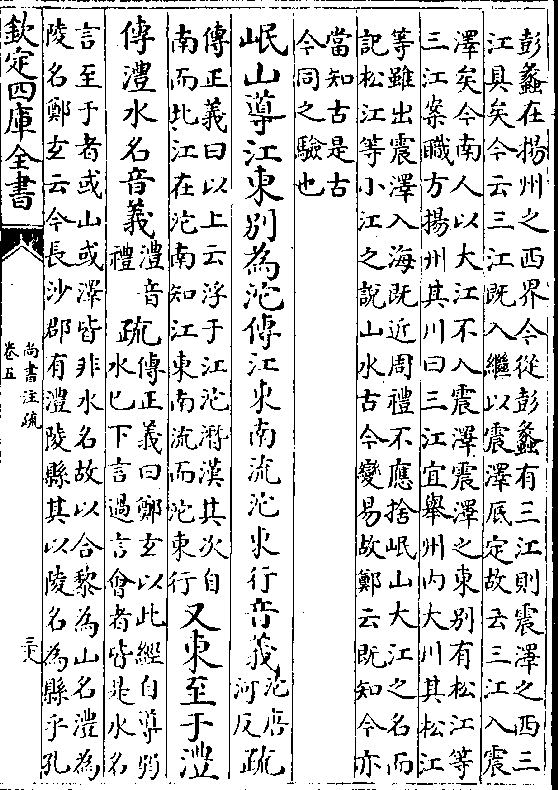 彭蠡在揚州之西界今從彭蠡有三江則震澤之西三
江具矣今云三江既入繼以震澤厎定故云三江入震
澤矣今南人以大江不入震澤震澤之東別有松江等
三江案職方揚州其川曰三江宜舉州内大川其松江
等雖出震澤入海既近周禮不應捨岷山大江之名而
記松江等小江之說山水古今變易故鄭云既知今亦
當知古是古
今同之驗也
岷山導江東別為沱傳江東南流沱東行音義沱唐
河反疏
傳正義曰以上云浮于江沱潛漢其次自
南而北江在沱南知江東南流而沱東行又東至于澧
傳澧水名音義澧音
禮疏傳正義曰鄭玄以此經自導弱
水已下言過言會者皆是水名
言至于者或山或澤皆非水名故以合黎為山名澧為
陵名鄭玄云今長沙郡有澧陵縣其以陵名為縣乎孔
欽定四庫全書
尚書注疏
卷五